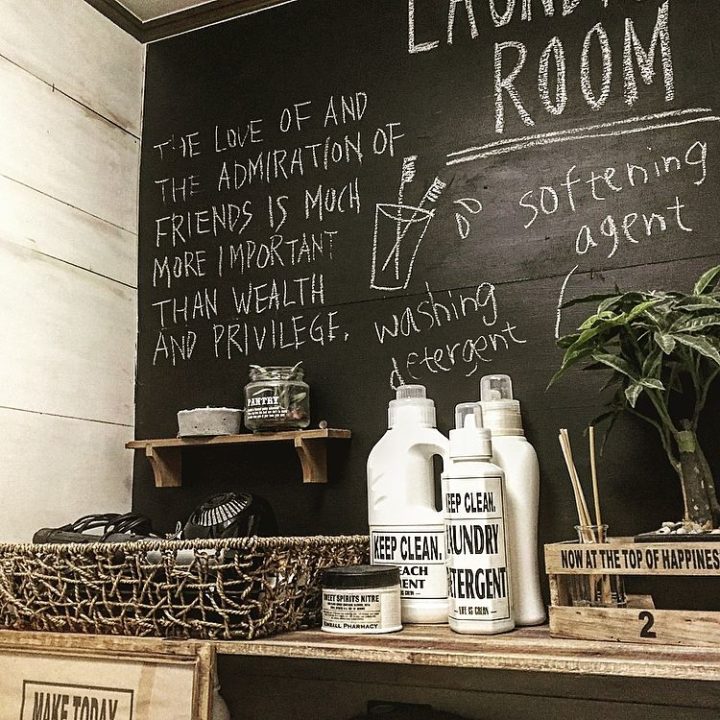 LAUNDRY
ROOM
THE LOVE OF AND
THE ADMIRATION OF
FRIENDS IS MUCH
MORE IMPORTANT
THAN WEALTH
AND PRIVILEGE.
softening
agent
washing
detergent
PANTRY
KEEP CLEAN.
KEEP CLEAN.
LAUNDRY
DETERGENT
SWEET SPIRITS NITRE
KIMBALL PHARMACY
NOW AT THE TOP OF HAPPINESS
2
MAKE TODAY